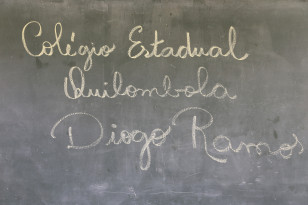 Colégio Estadual
Quilombola
Diogo Ramos